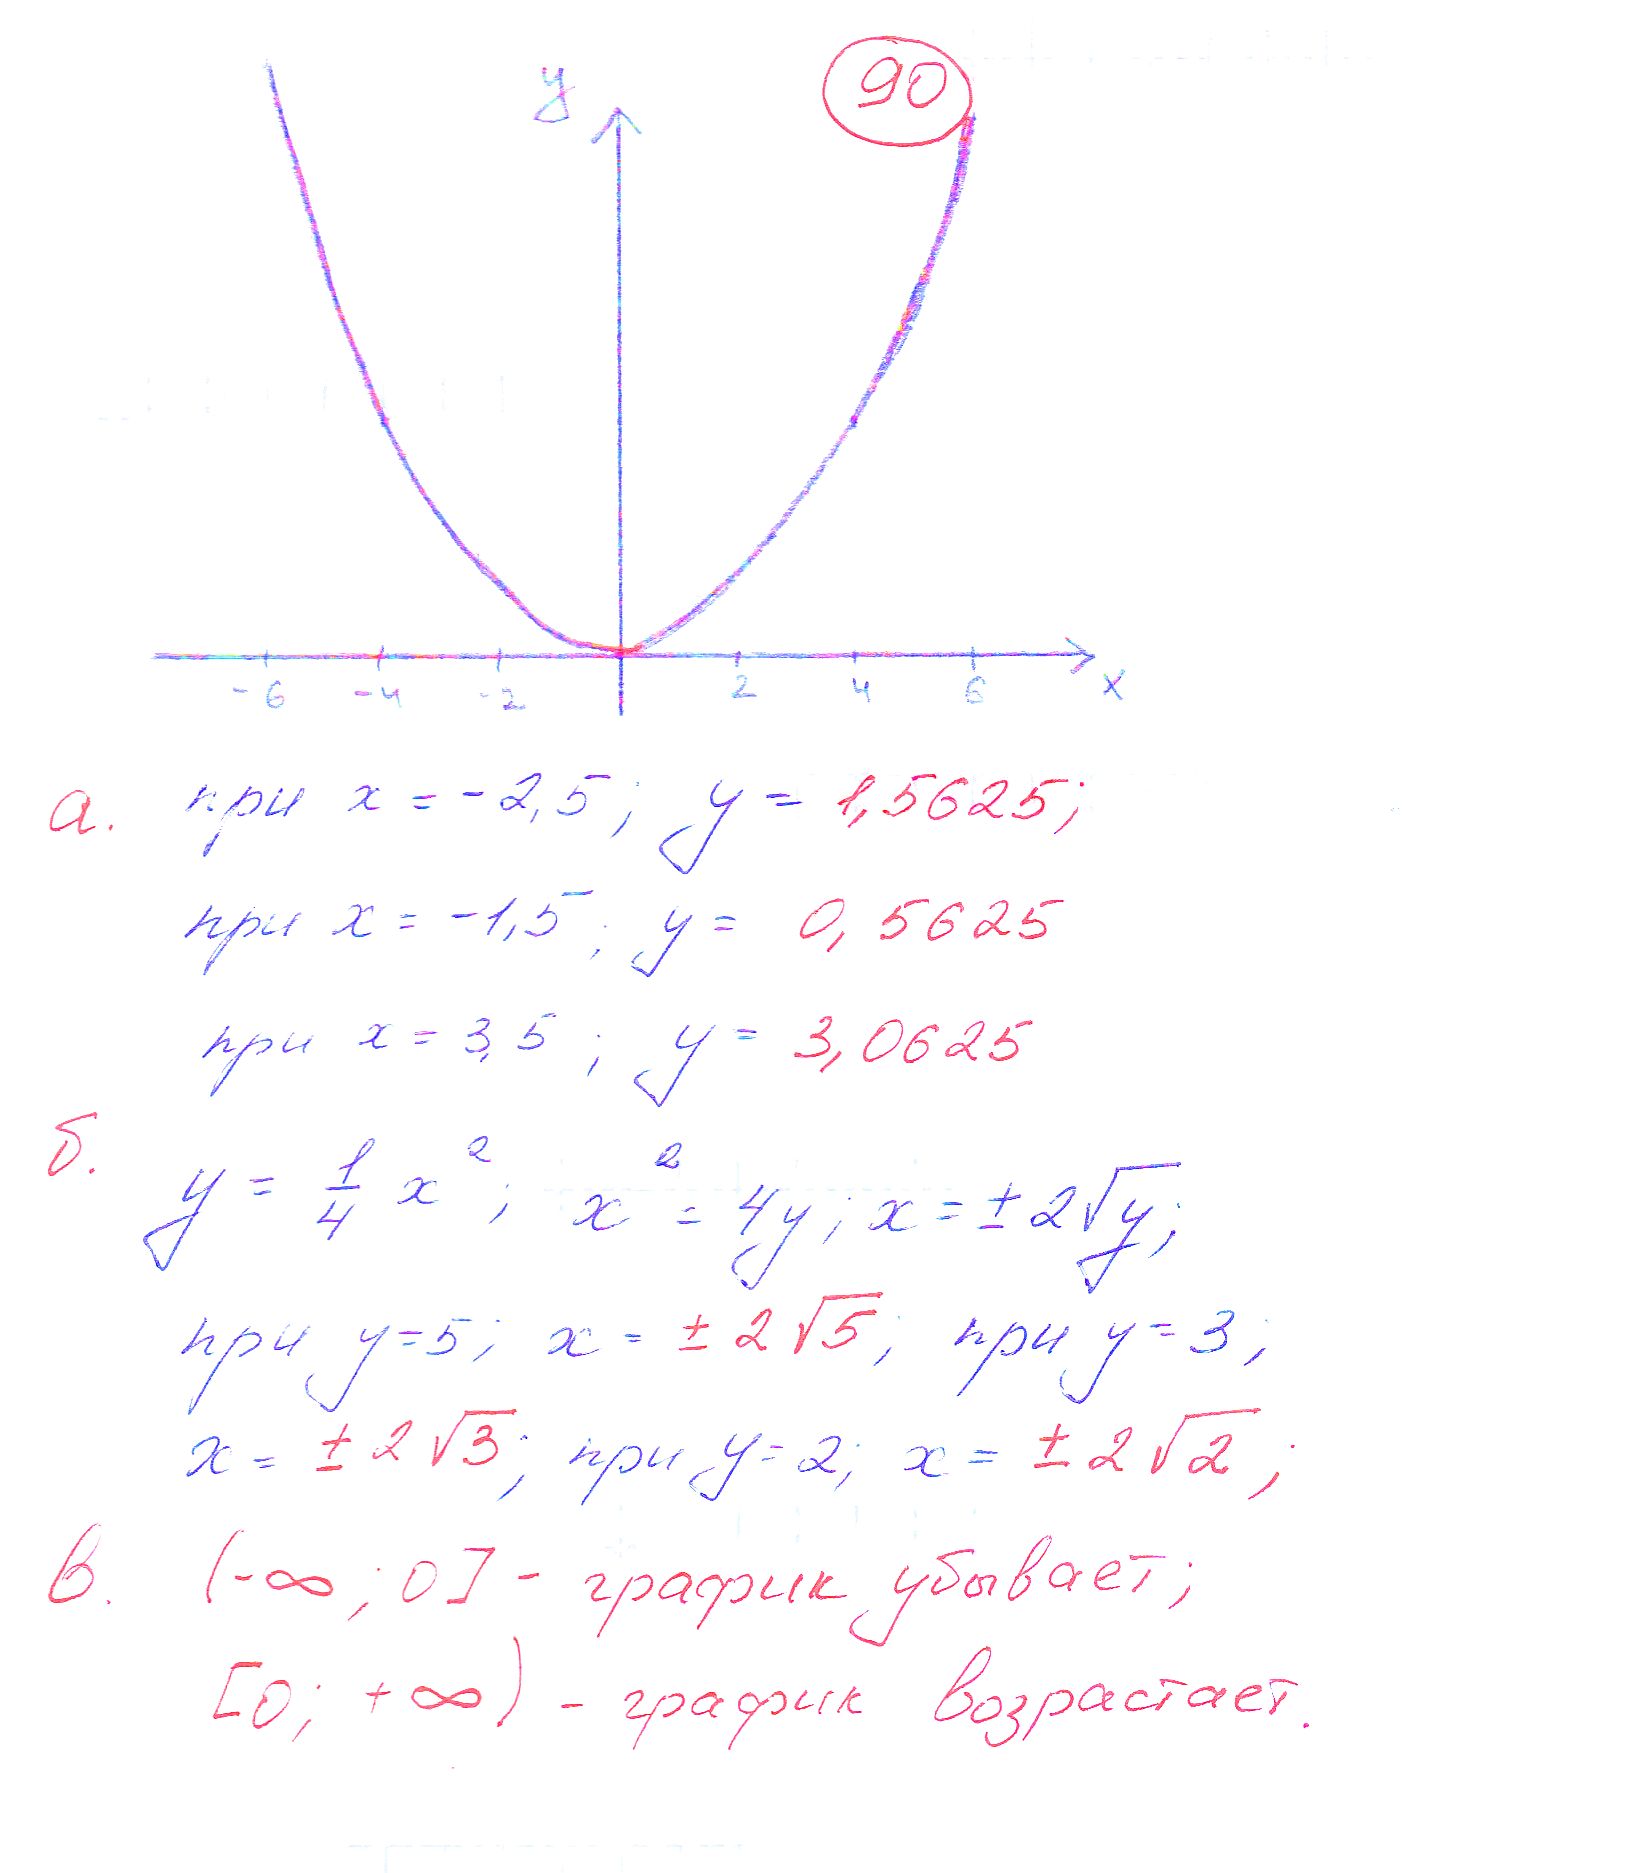 90
y
-6 -4 -2 2 4 6 x
а. при x = -2,5; y = 1,5625;
при x = -1,5; y = 0,5625
при x = 3,5; y = 3,0625
б.
y = 1/4 x²; x² = 4y; x = ± 2√y;
при y=5; x = ± 2√5; при y = 3;
x = ± 2√3; при y = 2; x = ± 2√2;
в. (-∞; 0] - график убывает;
[0; +∞) - график возрастает.